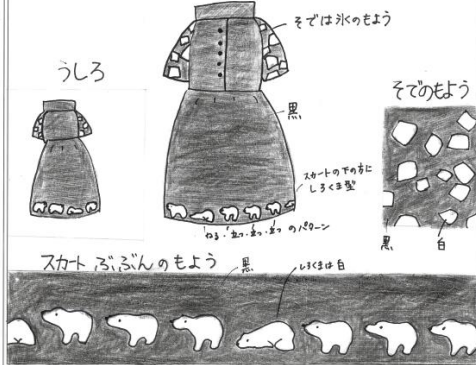 そでは氷のもよう
うしろ
黒
そでのもよう
スカートの下の方に
しろくま型
ねる・立つ・立つ・立つ のパターン
黒
白
スカート ぶぶんのもよう
黒
しろくまは白